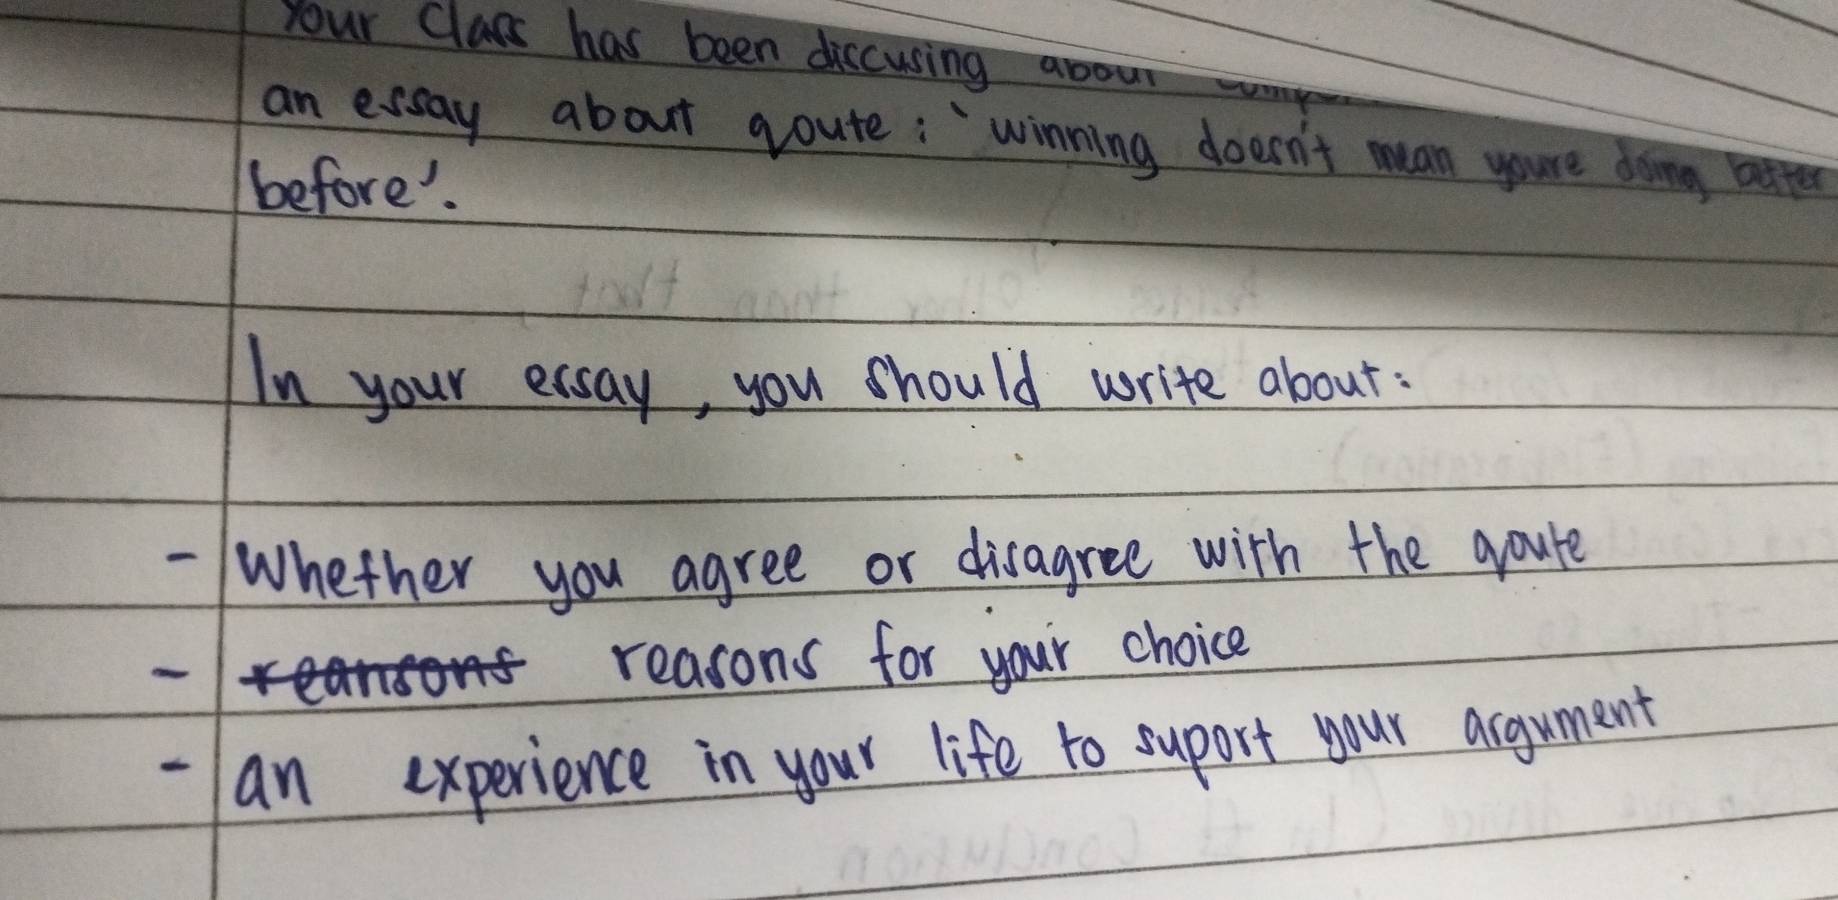 Your Class has been disccusing about
an essay about qoute: 'winning doesn't mean youre doing better
before'.
In your essay, you should write about:
- Whether you agree or disagree with the qoute
- reansons reasons for your choice
- an experience in your life to suport your argument